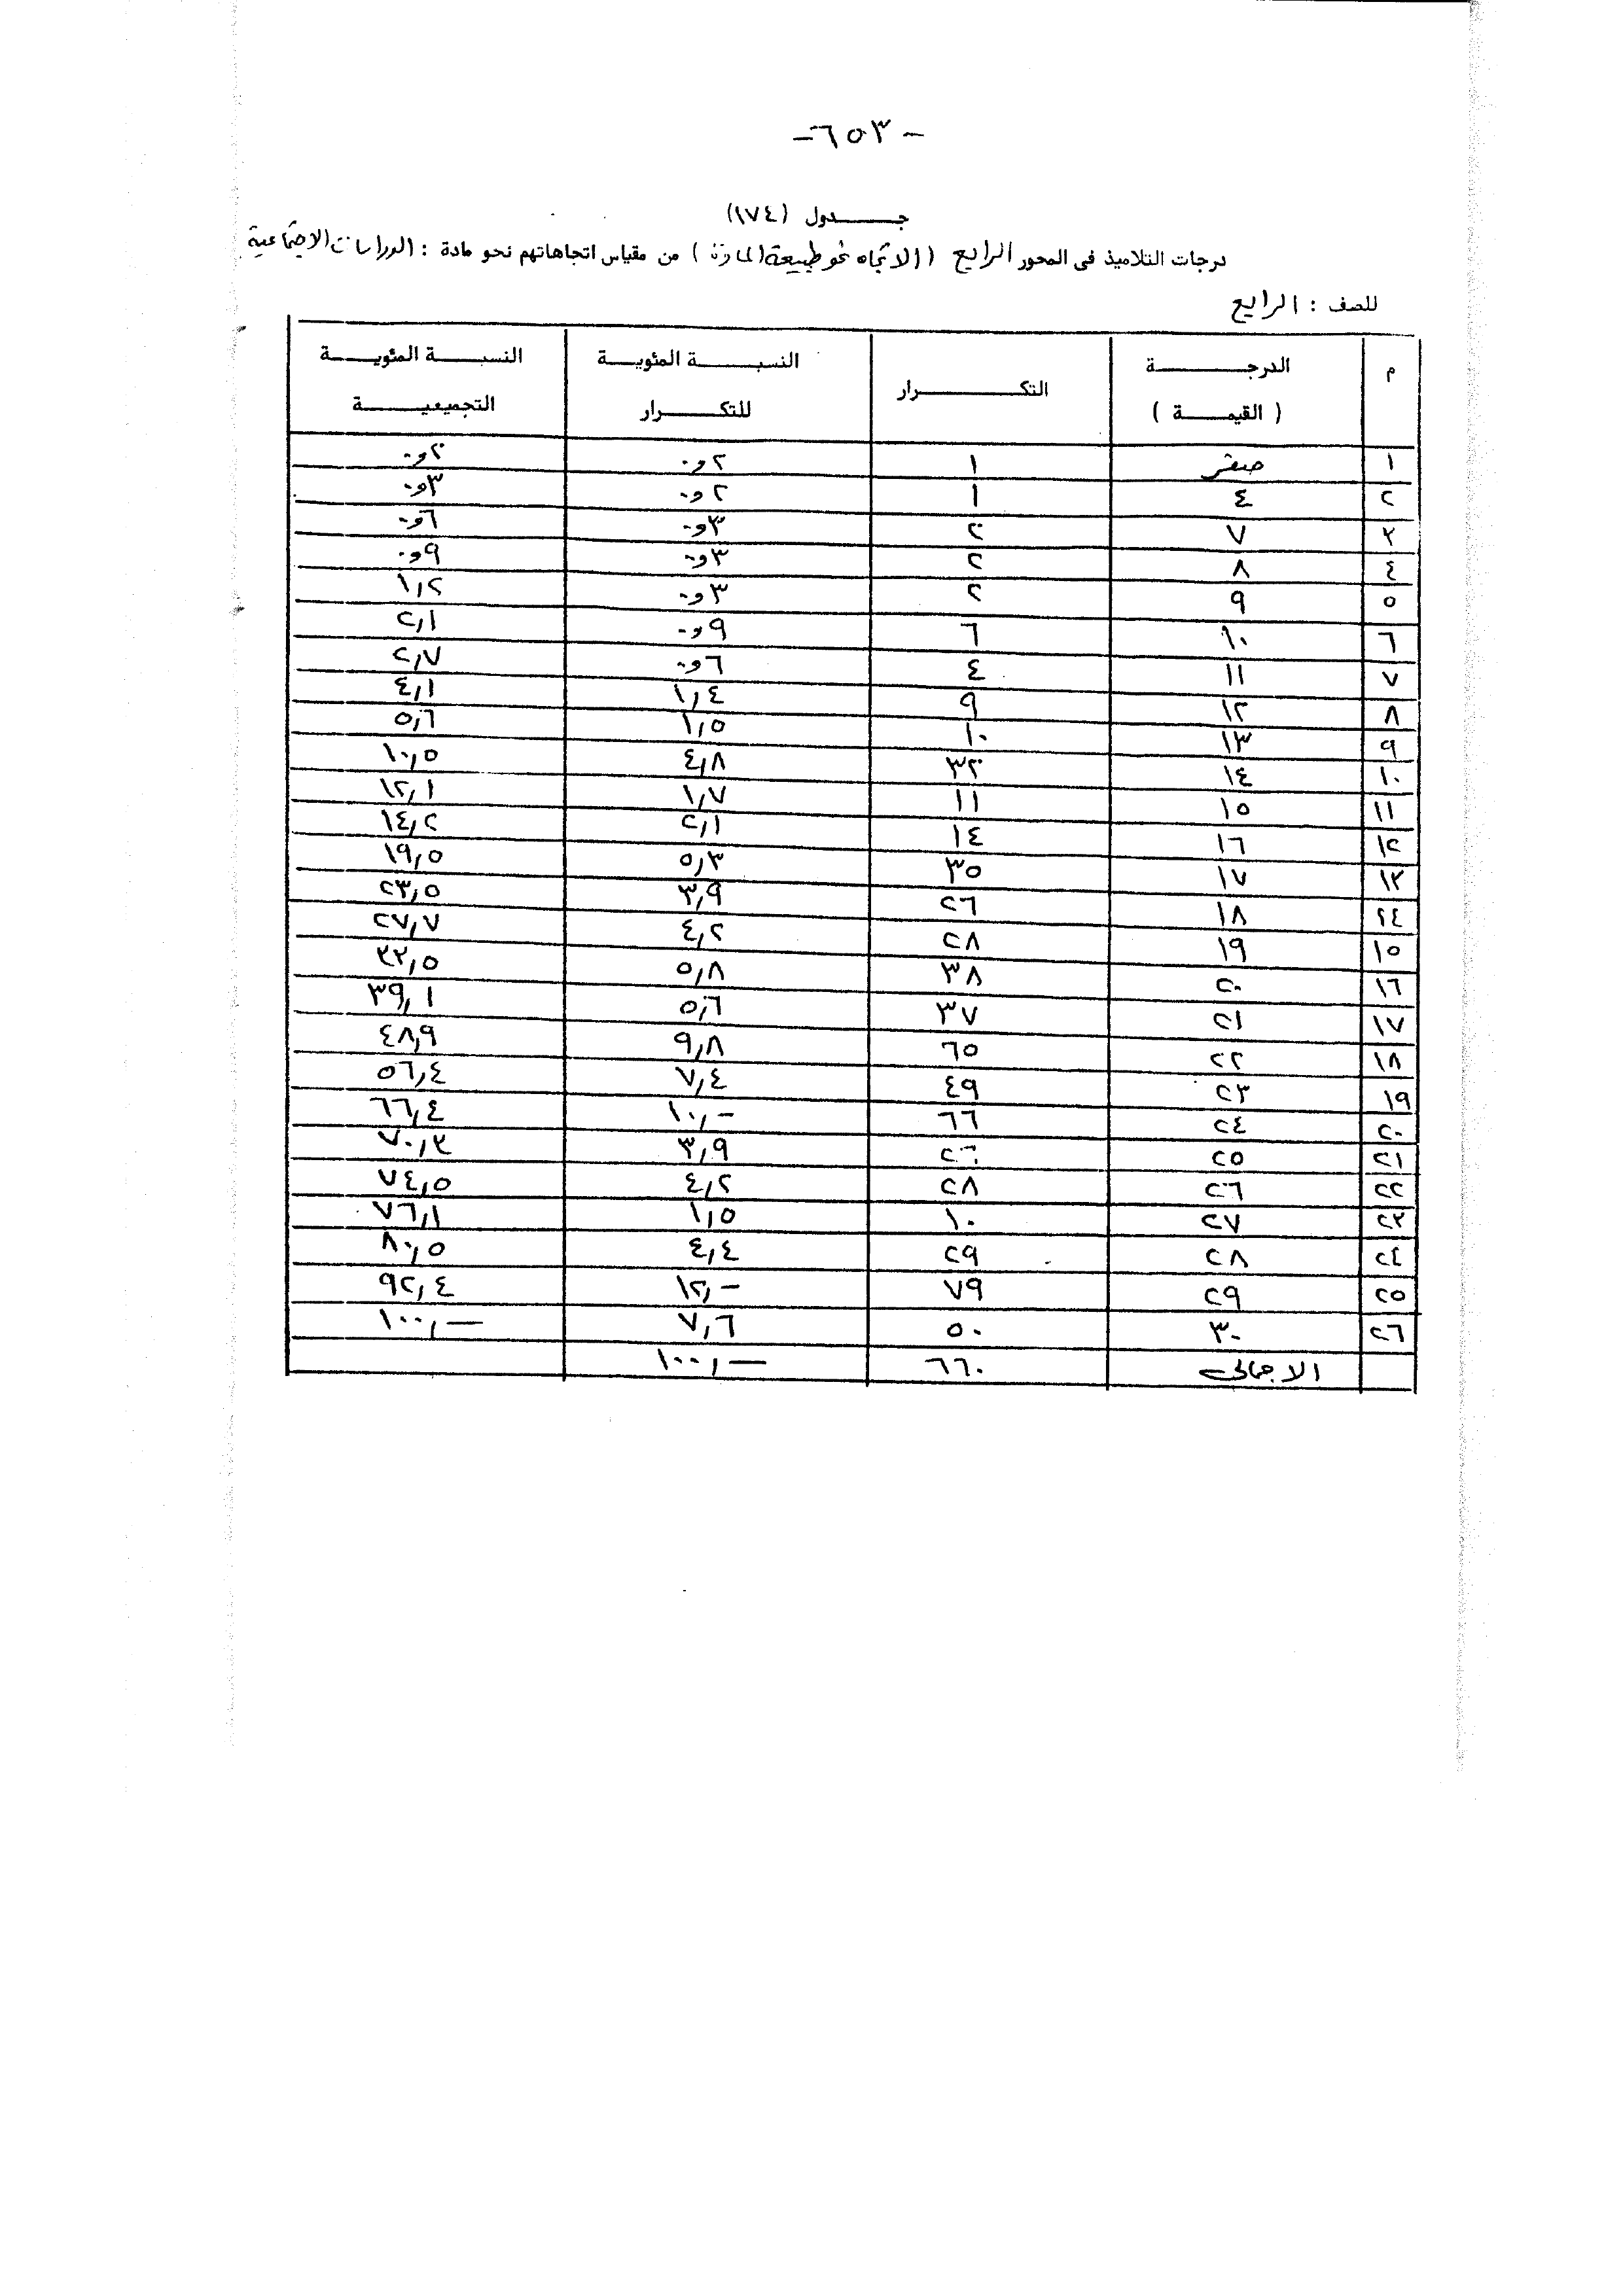 -٦٥٣-
جـــدول (١٧٤)
درجات التلاميذ فى المحور الرابع (الاتجاه نحو طبيعة المادة) من مقياس اتجاهاتهم نحو مادة : الدراسات الاجتماعية
للصف : الرابع
م الدرجــة (القيمــة) التكــرار النسبــة المئويــة للتكــرار النسبــة المئويــة التجميعيــة
١ صفر ١ ٢و٠ ٢و٠
٢ ٤ ١ ٢و٠ ٣و٠
٣ ٧ ٢ ٣و٠ ٦و٠
٤ ٨ ٢ ٣و٠ ٩و٠
٥ ٩ ٢ ٣و٠ ١,٢
٦ ١٠ ٦ ٩و٠ ٢,١
٧ ١١ ٤ ٦و٠ ٢,٧
٨ ١٢ ٩ ١,٤ ٤,١
٩ ١٣ ١٠ ١,٥ ٥,٦
١٠ ١٤ ٣٢ ٤,٨ ١٠,٥
١١ ١٥ ١١ ١,٧ ١٢,١
١٢ ١٦ ١٤ ٢,١ ١٤,٢
١٣ ١٧ ٣٥ ٥,٣ ١٩,٥
١٤ ١٨ ٢٦ ٣,٩ ٢٣,٥
١٥ ١٩ ٢٨ ٤,٢ ٢٧,٧
١٦ ٢٠ ٣٨ ٥,٨ ٣٣,٥
١٧ ٢١ ٣٧ ٥,٦ ٣٩,١
١٨ ٢٢ ٦٥ ٩,٨ ٤٨,٩
١٩ ٢٣ ٤٩ ٧,٤ ٥٦,٤
٢٠ ٢٤ ٦٦ ١٠,- ٦٦,٤
٢١ ٢٥ ٢٦ ٣,٩ ٧٠,٣
٢٢ ٢٦ ٢٨ ٤,٢ ٧٤,٥
٢٣ ٢٧ ١٠ ١,٥ ٧٦,١
٢٤ ٢٨ ٢٩ ٤,٤ ٨٠,٥
٢٥ ٢٩ ٧٩ ١٢,- ٩٢,٤
٢٦ ٣٠ ٥٠ ٧,٦ ١٠٠,-
الاجمالى ٦٦٠ ١٠٠,-